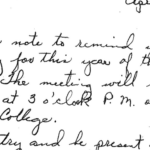 note to remind
for this year of
The meeting will
at 3 o'clock P.M.
College.
try and be present